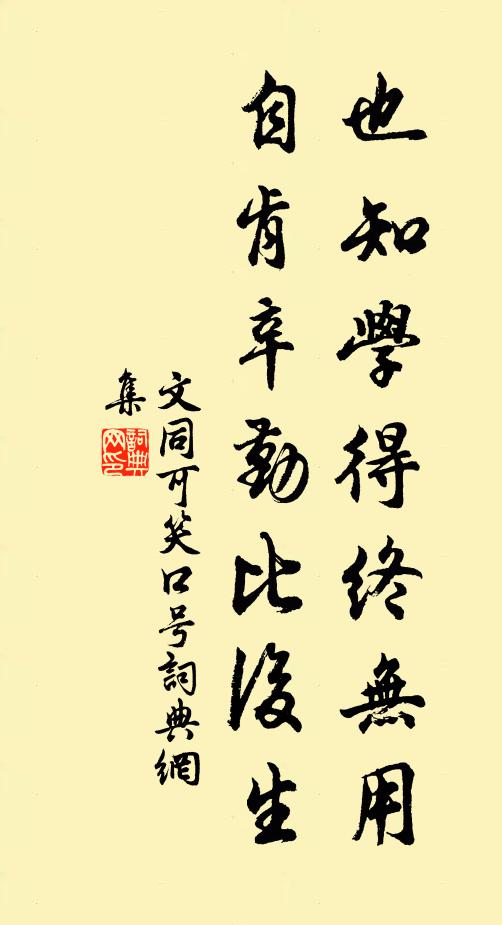 也知學得終無用
自肯辛勤比後生
文同可笑口号詞典網
集
詞典网印